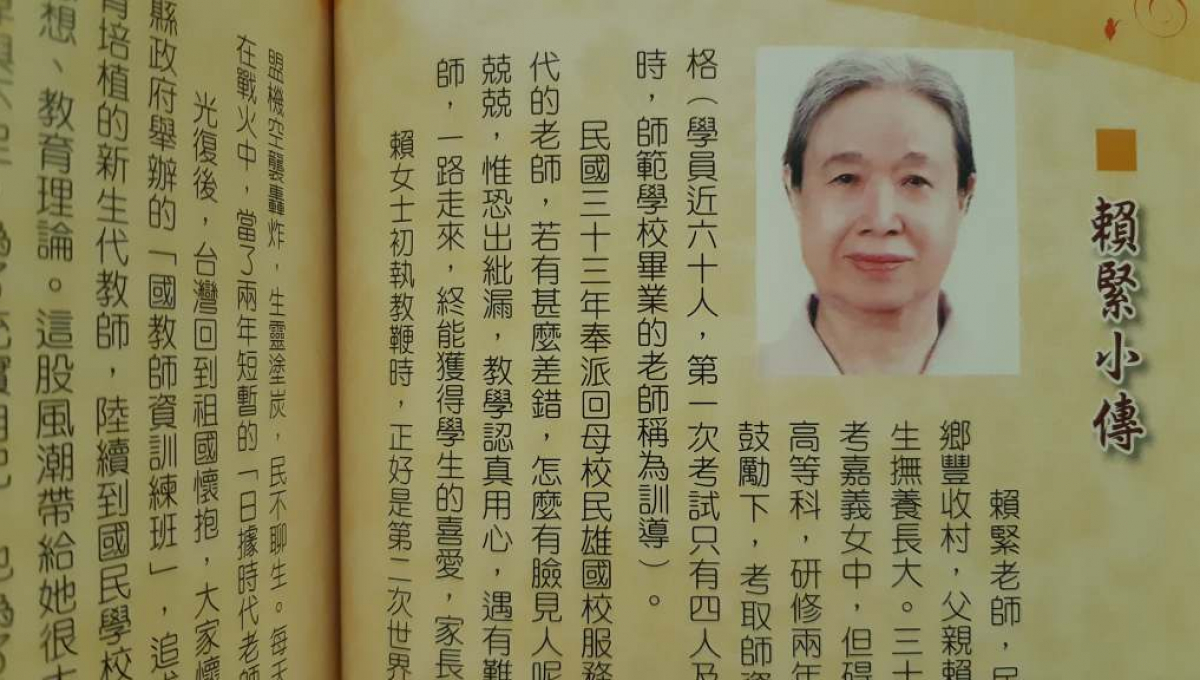 賴緊小傳
賴緊老師，民
鄉豐收村，父親賴
生撫養長大。三十
考嘉義女中，但礙
高等科，研修兩年
鼓勵下，考取師資
格（學員近六十人，第一次考試只有四人及
時，師範學校畢業的老師稱為訓導）。
民國三十三年奉派回母校民雄國校服務
代的老師，若有甚麼差錯，怎麼有臉見人呢
兢兢，惟恐出紕漏，教學認真用心，遇有難
師，一路走來，終能獲得學生的喜愛，家長
賴女士初執教鞭時，正好是第二次世界
盟機空襲轟炸，生靈塗炭，民不聊生。每天
在戰火中，當了兩年短暫的「日據時代老師
光復後，台灣回到祖國懷抱，大家懷
縣政府舉辦的「國教師資訓練班」，追求
培植的新生代教師，陸續到國民學校
想、教育理論。這股風潮帶給她很大